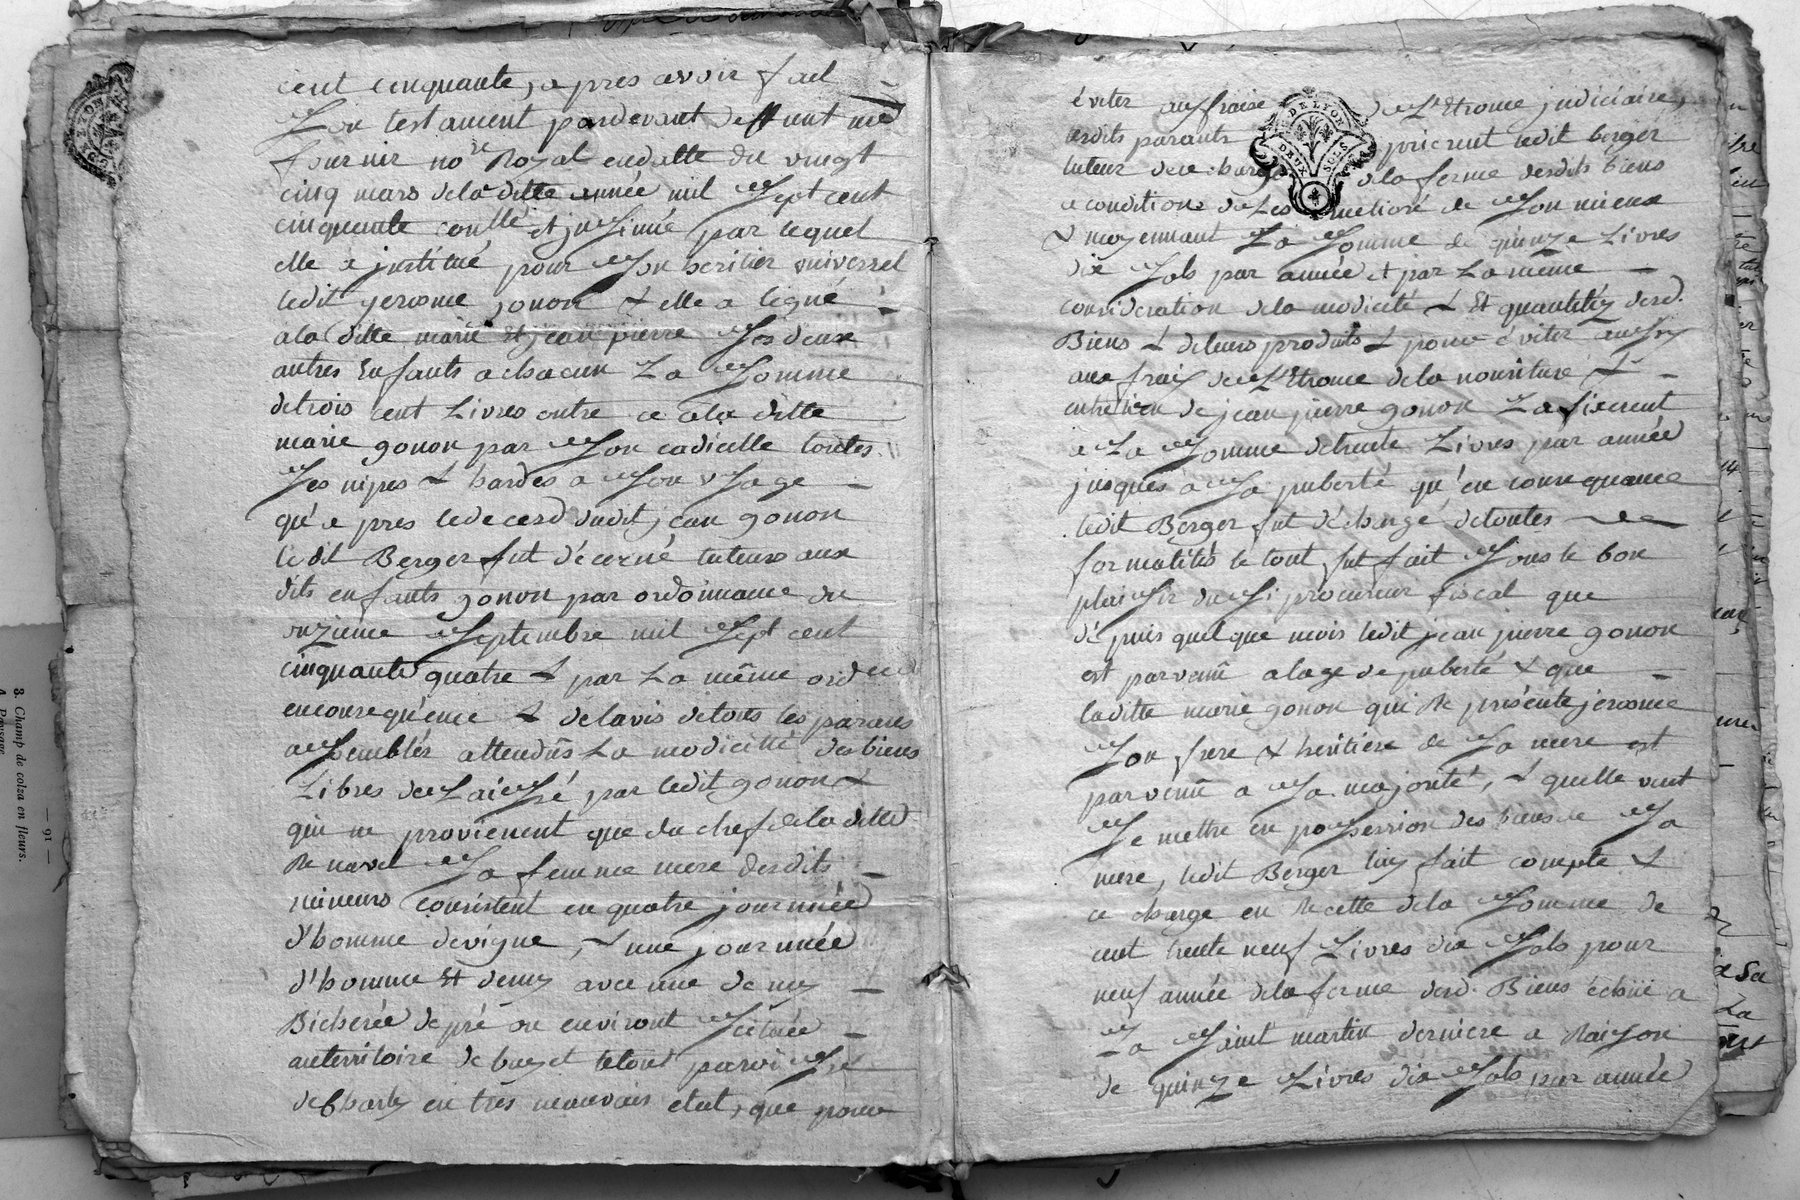 cent cinquante, apres avoir fait
Son testament pardevant deffunt me
fournir no.re Royal en datte du vingt
cinq mars dela ditte année mil Sept cent
cinquante conllé et jnSinué par lequel
elle a jnstitué pour Son heritier universel
ledit jerosme gonon & elle a legué
ala ditte marie Et jean pierre Ses deux
autres Enfants a chacun La Somme
detrois cent Livres outre ce ala ditte
marie gonon par Son codicille toutes
Ses nipes & hardes a Son vSage
qu'apres ledeced dudit jean gonon
ledit Berger fut décerné tuteur aux
dits enfants gonon par ordonnance du
onzieme Septembre mil Sept cent
cinquante quatre & par La même ordce
enconsequence & delavis detous les parans
aSSemblés attendûs La modicitté des biens
Libres deLaiSSé par ledit gonon &
qui ne provienent que du chef dela ditte
Renavel Sa femme mere desdits
mineurs consistent en quatre journnée
d'homme devigne, & une journnée
d'homme Et demy avec une demy
Bicherée de pré ou environt Scituée
auterritoire de buyet letout parroiSSe
deCharly en tres mauvais etat, que pour
éviter aux fraise de L'Etrousse judiciaire,
lesdits parants prierent ledit berger
tuteur dece charger dela ferme desdits biens
a condition deLes meliorer de Son mieux
& moyennant La Somme de quinze Livres
dix Sols par année et par La meme
consideration dela modicité & Et quantitéz desd.
Biens & deleurs produits & pour éviter auSSy
aux frais deL'Etrousse dela nouriture &
entretien de jean pierre gonon Lafixerent
a La Somme detrente Livres par année
jusques a Sa puberté qu'en consequance
ledit Berger fut déchargé detoutes
formalités le tout fut fait Sous le bon
plaiSir du Sr procureur fiscal que
dépuis quelque mois ledit jean pierre gonon
est parvenû alage de puberté & que
laditte marie gonon qui Represente jerosme
Son frere & heritiere de Sa mere est
parvenû a Sa majorité, & quelle veut
Se mettre en poSSession des biens de Sa
mere, ledit Berger luy fait compte &
ce charge en Recette dela Somme de
cent trente neuf Livres dix Sols pour
neuf année dela ferme desd. Biens échûe a
La Saint martin derniere a RaiSon
de quinze Livres dix Sols par année
DE LYON
DEUX SOLS
3. Champ de colza en fleurs.
— 91 —